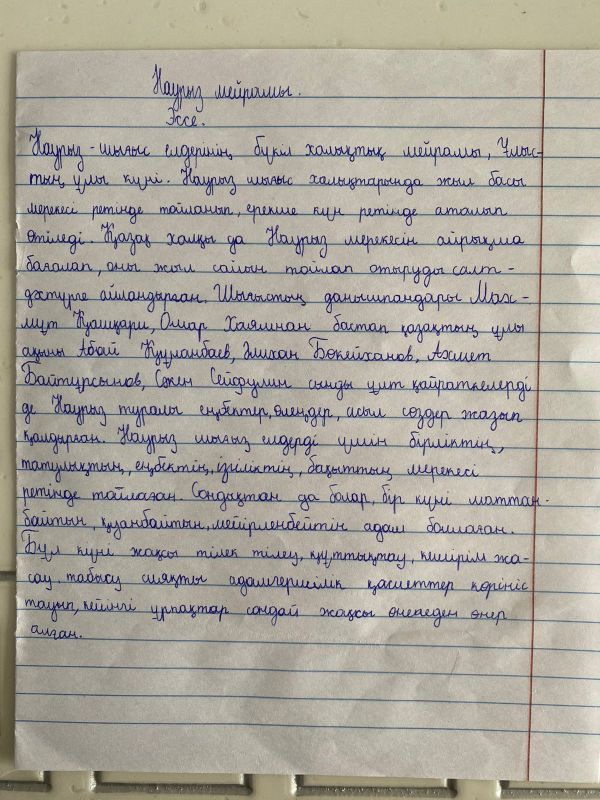 Наурыз мейрамы.
Эссе.
Наурыз - шығыс елдерінің бүкіл халықтық мейрамы, Ұлыс-
тың ұлы күні. Наурыз шығыс халықтарында жыл басы
мерекесі ретінде тойланып, ерекше күн ретінде аталып
өтіледі. Қазақ халқы да Наурыз мерекесін айрықша
бағалап, оны жыл сайын тойлап отыруды салт -
дәстүрге айландырған. Шығыстың данышпандары Мах-
мұт Қашқари, Омар Хаямнан бастап қазақтың ұлы
ақыны Абай Құнанбаев, Әлихан Бөкейханов, Ахмет
Байтұрсынов, Сәкен Сейфулин сынды ұлт қайраткелерді
де Наурыз туралы еңбектер, өлеңдер, асыл сөздер жазып
қалдырған. Наурыз шығыз елдерді үшін бірліктің,
татулықтың, еңбектің, ізгіліктің, бақыттың мерекесі
ретінде тойлаған. Сондықтан да болар, бір күні шаттан-
байтын, қуанбайтын, мейірленбейтін адам болмаған.
Бұл күні жақсы тілек тілеу, құттықтау, кешірім жа-
сау, табысу сияқты адамгершілік қасиеттер көрініс
тауып, кейінгі ұрпақтар сондай жақсы өнегеден өнер
алған.